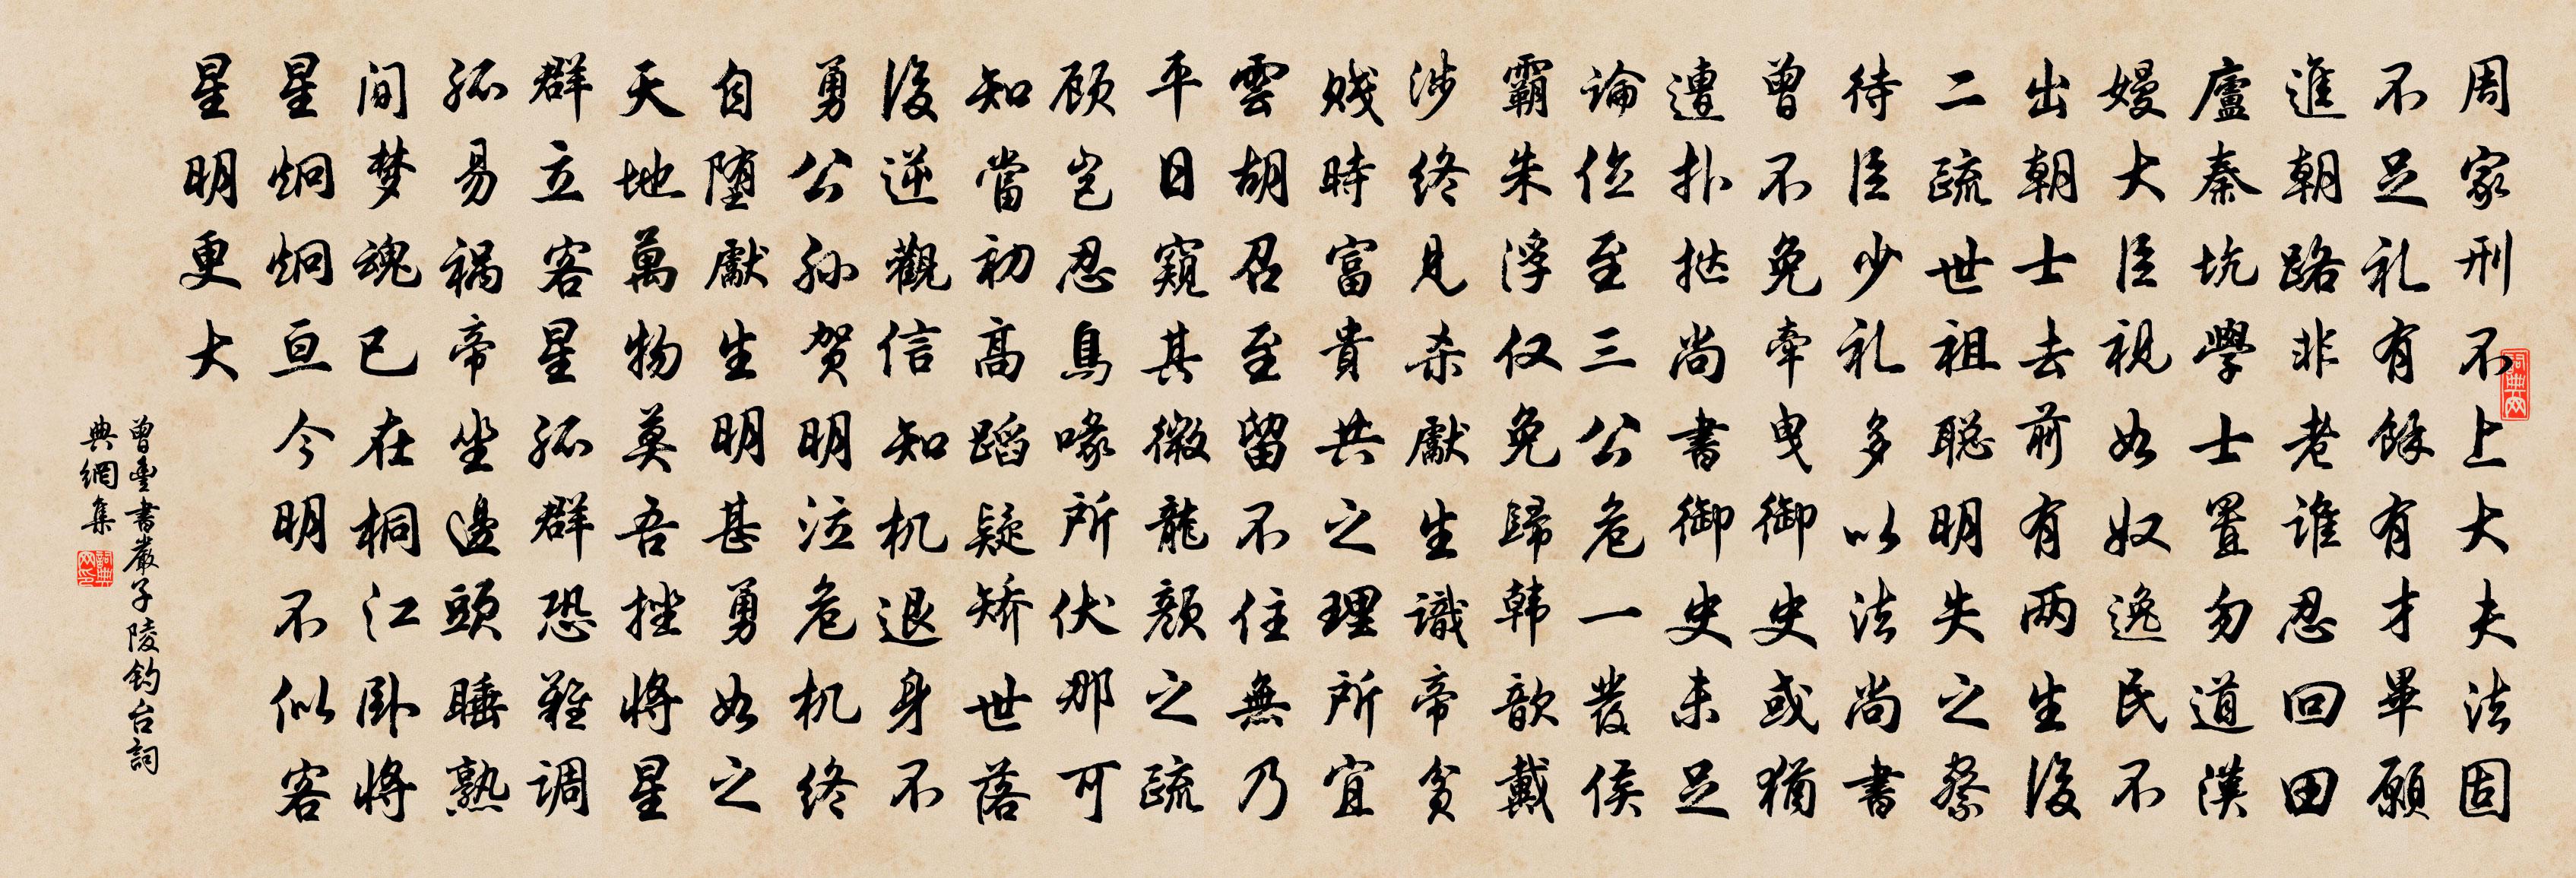 周家刑不上大夫法固
不足礼有餘有才畢願
進朝路非老谁忍回田
廬秦坑學士置勿道漢
嫚大臣視如奴逸民不
出朝士去前有两生後
二疏世祖聪明失之察
待臣少礼多以法尚書
曾不免牽曳御史或猶
遭扑挞尚書御史未足
論位至三公危一發侯
霸朱浮仅免歸韩歆戴
涉终見杀獻生識帝贫
贱時富貴共之理所宜
雲胡召至留不住無乃
平日窺其微龍颜之疏
顾岂忍鳥喙所伏那可
知當初高蹈疑矫世落
後逆觀信知机退身不
勇公孙贺明泣危机终
自堕獻生明甚勇如之
天地萬物莫吾挫将星
群立客星孤群恐難调
孤易禍帝坐邊頭睡熟
间梦魂已在桐江卧將
星炯炯亘今明不似客
星明更大
曾豐書嚴子陵釣台詞
典網集